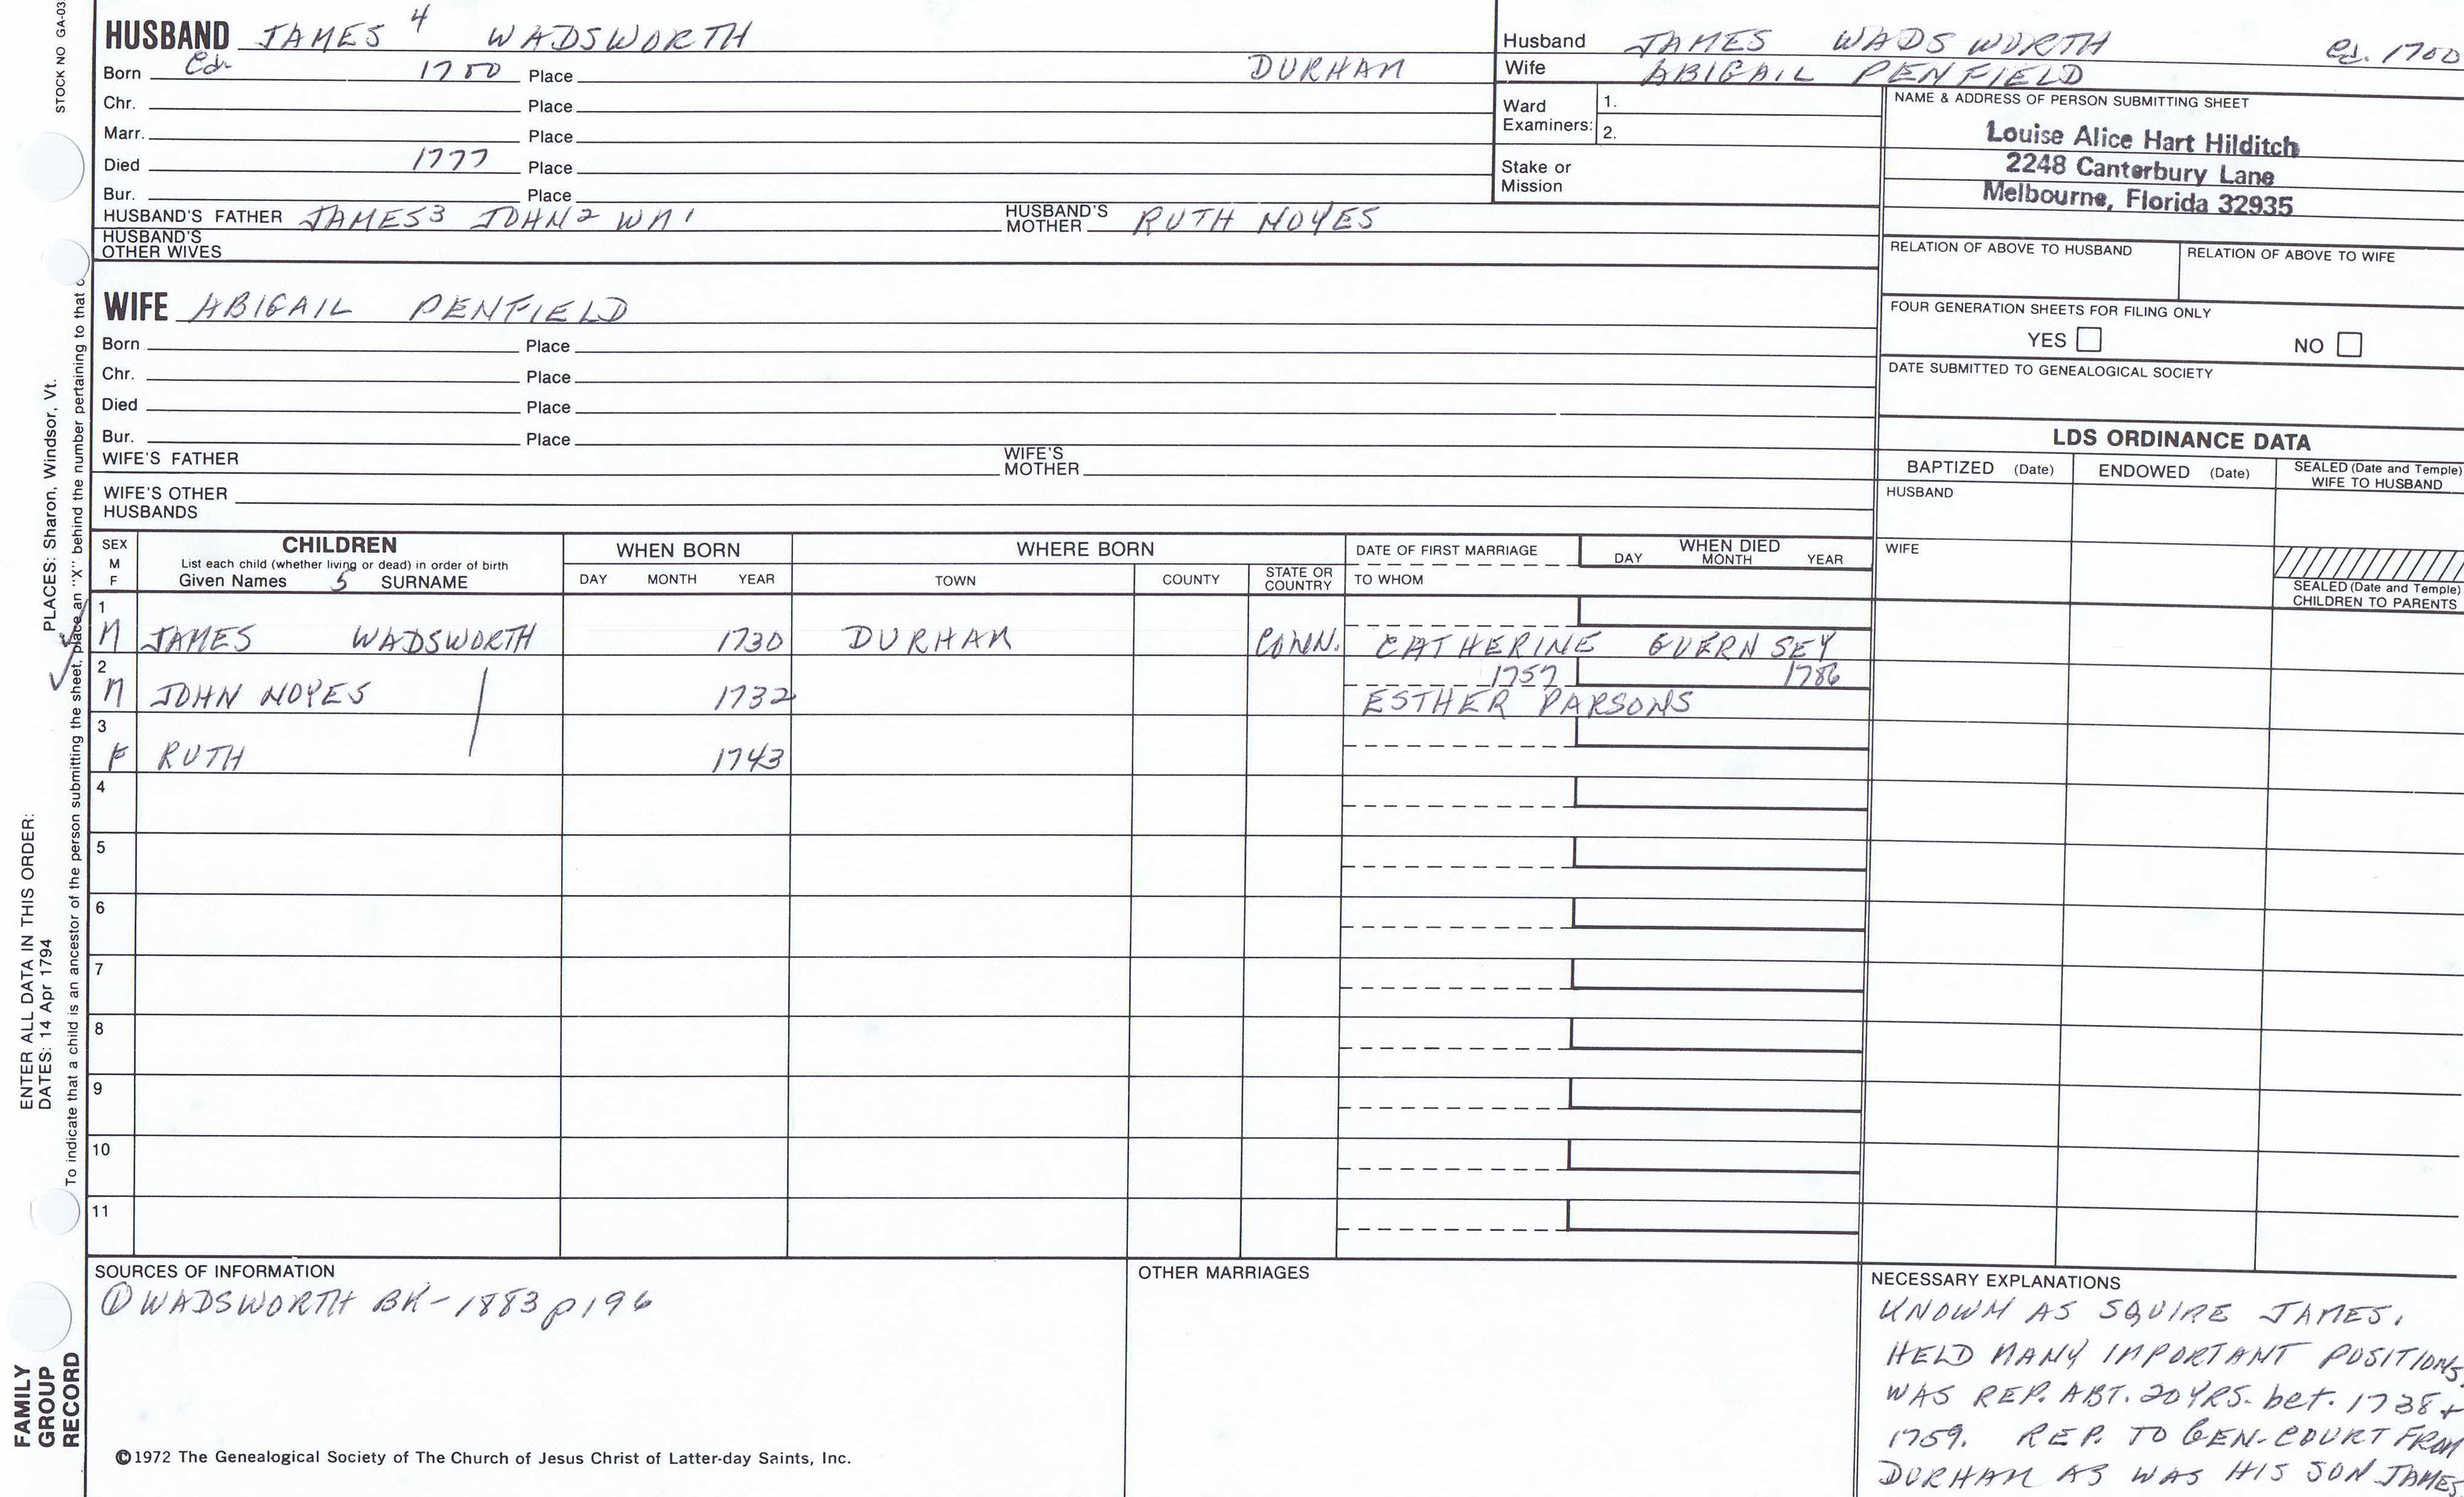 STOCK NO GA-03
HUSBAND JAMES 4 WADSWORTH
Born 1700 Place DURHAM
Chr. Place
Marr. Place
Died 1777 Place
Bur. Place
HUSBAND'S FATHER JAMES3 JOHN2 WM1 HUSBAND'S MOTHER RUTH NOYES
HUSBAND'S OTHER WIVES
Husband JAMES WADSWORTH 1700
Wife ABIGAIL PENFIELD
Ward Examiners: 1.
2.
Stake or Mission
NAME & ADDRESS OF PERSON SUBMITTING SHEET
Louise Alice Hart Hilditch
2248 Canterbury Lane
Melbourne, Florida 32935
RELATION OF ABOVE TO HUSBAND RELATION OF ABOVE TO WIFE
FOUR GENERATION SHEETS FOR FILING ONLY
YES NO
DATE SUBMITTED TO GENEALOGICAL SOCIETY
WIFE ABIGAIL PENFIELD
Born Place
Chr. Place
Died Place
Bur. Place
WIFE'S FATHER WIFE'S MOTHER
WIFE'S OTHER HUSBANDS
LDS ORDINANCE DATA
BAPTIZED (Date) ENDOWED (Date) SEALED (Date and Temple) WIFE TO HUSBAND
HUSBAND
WIFE
SEALED (Date and Temple) CHILDREN TO PARENTS
SEX M F
CHILDREN
List each child (whether living or dead) in order of birth
Given Names 5 SURNAME
WHEN BORN
DAY MONTH YEAR
WHERE BORN
TOWN COUNTY STATE OR COUNTRY
DATE OF FIRST MARRIAGE
TO WHOM
WHEN DIED
DAY MONTH YEAR
1
M JAMES WADSWORTH 1730 DURHAM CONN. CATHERINE GUERNSEY
2 1757 1786
M JOHN NOYES 1732 ESTHER PARSONS
3
F RUTH 1743
4
5
6
7
8
9
10
11
SOURCES OF INFORMATION
① WADSWORTH BK-1883 p196
OTHER MARRIAGES
NECESSARY EXPLANATIONS
KNOWN AS SQUIRE JAMES.
HELD MANY IMPORTANT POSITIONS.
WAS REP. ABT. 20 YRS. bet. 1738 +
1759. REP. TO GEN-COURT FROM
DURHAM AS WAS HIS SON JAMES
©1972 The Genealogical Society of The Church of Jesus Christ of Latter-day Saints, Inc.
FAMILY
GROUP
RECORD
ENTER ALL DATA IN THIS ORDER:
DATES: 14 Apr 1794 PLACES: Sharon, Windsor, Vt.
To indicate that a child is an ancestor of the person submitting the sheet, place an "X" behind the number pertaining to that